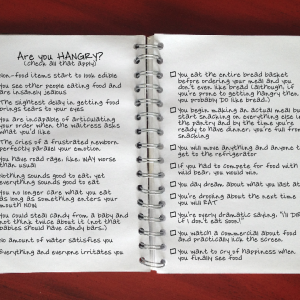 Are you HANGRY?
(check all that apply)
Non-food items start to look edible
You see other people eating food and
are insanely jealous
The slightest delay in getting food
brings tears to your eyes
You are incapable of articulating
your order when the waitress asks
what you'd like
The cries of a frustrated newborn
perfectly parallel your emotion
You have road rage. like. WAY worse
than usual
Nothing sounds good to eat, yet
everything sounds good to eat
You no longer care what you eat
as long as something enters your
mouth NOW
You could steal candy from a baby and
not think twice about it (not that
babies should have candy bars.)
No amount of water satisfies you
Everything and everyone irritates you
You eat the entire bread basket
before ordering your meal and you
don't even like bread (although, if
you're prone to getting hangry then
you probably DO like bread.)
You begin making an actual meal but
start snacking on everything else in
the pantry and by the time you're
ready to have dinner, you're full from
snacking
You will move anything and anyone to
get to the refrigerator
If you had to compete for food with a
wild bear, you would win
You day dream about what you last ate
You're drooling about the next time
you will EAT
You're overly dramatic saying, "I'll DIE
if I don't eat soon!"
You watch a commercial about food
and practically lick the screen
You want to cry of happiness when
you finally see food